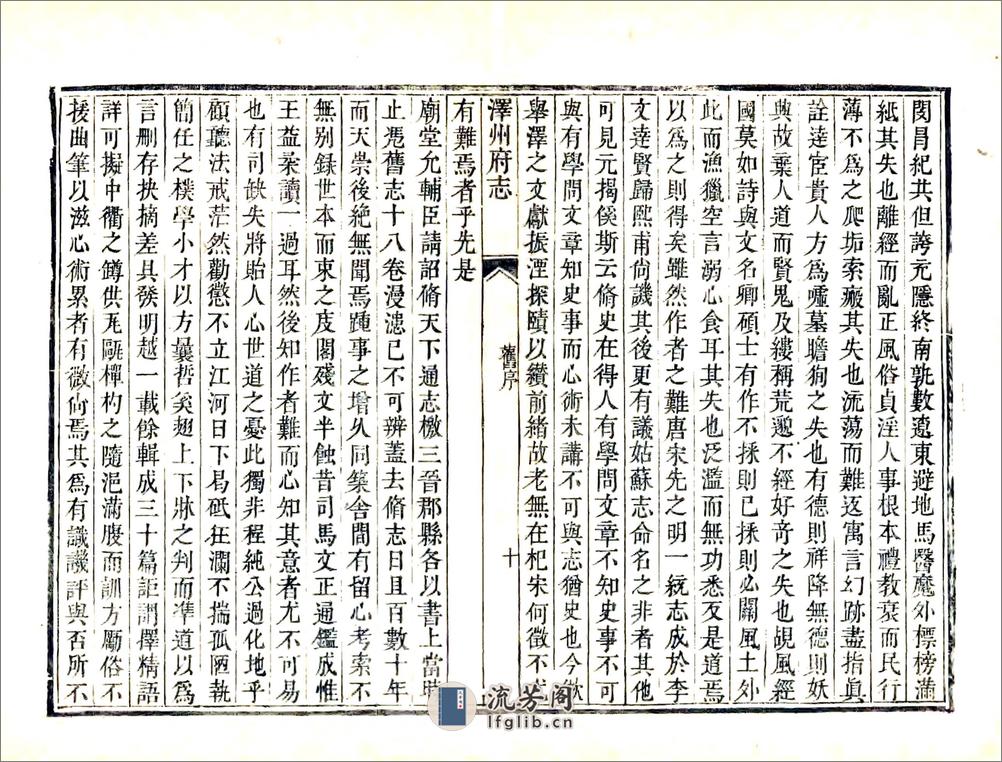 閔昌紀共但誇充隱終南孰數遼東避地馬醫魔外標榜滿
紙其失也離經而亂正風俗貞淫人事根本禮教衰而民行
薄不爲之爬垢索瘢其失也流蕩而難返寓言幻跡盡指真
詮達宦貴人方爲嚧墓瞻狗之失也有德則祥降無德則妖
興故棄人道而賢鬼及縷稱荒邈不經好竒之失也覘風經
國莫如詩與文名卿碩士有作不採則已採則必關風土外
此而漁獵空言溺心食耳其失也泛濫而無功悉反是道焉
以爲之則得矣雖然作者之難唐宋先之明一統志成於李
文達賢歸熙甫尚譏其後更有議姑蘇志命名之非者其他
可見元揭傒斯云脩史在得人有學問文章不知史事不可
與有學問文章知史事而心術未講不可與志猶史也今欲
舉澤之文獻振湮探賾以纘前緒故老無在杞宋何徵不尤
澤州府志
舊序
十
有難焉者乎先是
廟堂允輔臣請詔脩天下通志檄三晉郡縣各以書上當時
止凴舊志十八卷漫漶已不可辨蓋去脩志日且百數十年
而天崇後絶無聞焉踵事之增乆同築舍間有留心考索不
無别錄世本而束之庋閣殘文半蝕昔司馬文正通鑑成惟
王益柔讀一過耳然後知作者難而心知其意者尤不可易
也有司缺失將貽人心世道之憂此獨非程純公過化地乎
顧聽法戒茫然勸懲不立江河日下曷砥狂瀾不揣孤陋執
簡任之樸學小才以方曩哲奚翅上下牀之判而凖道以爲
言刪存抉摘差具發明越一載餘輯成三十篇詎謂擇精語
詳可擬中衢之罇供瓦甌樿杓之隨挹滿腹而訓方厲俗不
援曲筆以滋心術累者有微尚焉其爲有識譏評與否所不
流芳阁
lfglib.cn